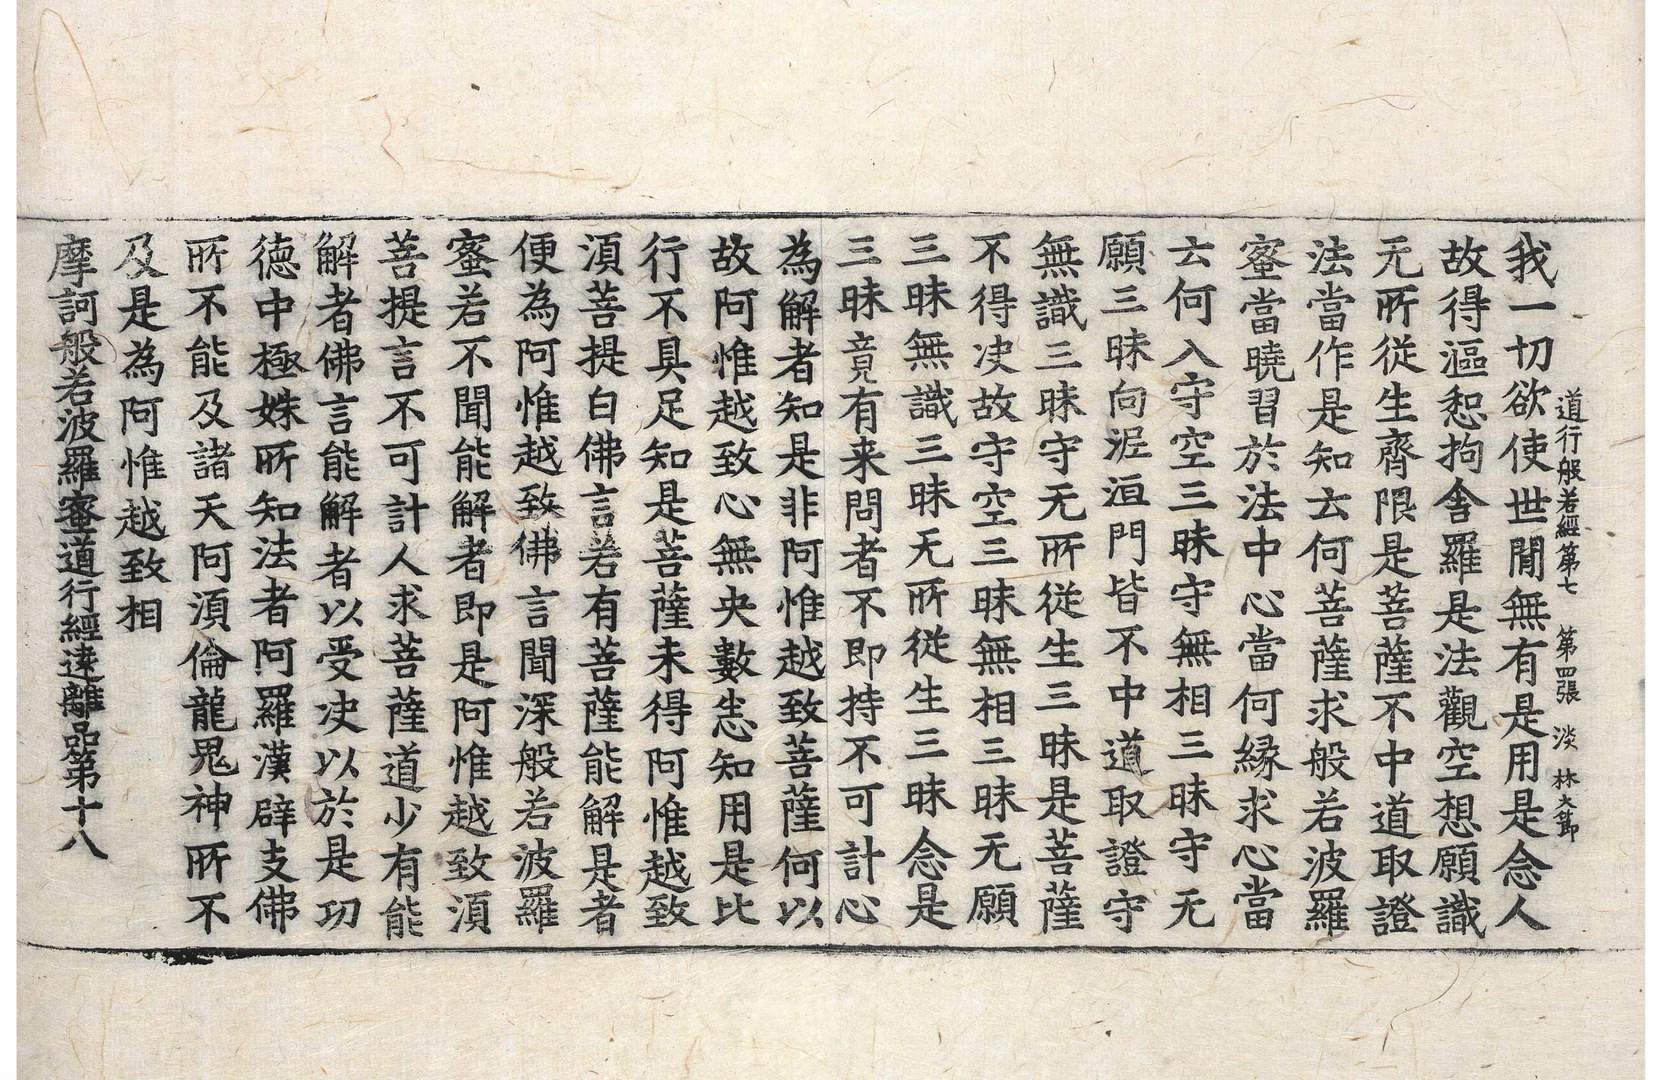 道行般若經第七 第四張 淡 林大節
我一切欲使世閒無有是用是念人
故得漚惒拘舍羅是法觀空想願識
无所從生齊限是菩薩不中道取證
法當作是知云何菩薩求般若波羅
蜜當曉習於法中心當何緣求心當
云何入守空三昧守無相三昧守无
願三昧向泥洹門皆不中道取證守
無識三昧守无所從生三昧是菩薩
不得决故守空三昧無相三昧无願
三昧無識三昧无所從生三昧念是
三昧竟有来問者不即持不可計心
為解者知是非阿惟越致菩薩何以
故阿惟越致心無央數悉知用是比
行不具足知是菩薩未得阿惟越致
湏菩提白佛言若有菩薩能解是者
便為阿惟越致佛言聞深般若波羅
蜜若不聞能解者即是阿惟越致湏
菩提言不可計人求菩薩道少有能
解者佛言能解者以受决以於是功
德中極姝所知法者阿羅漢辟支佛
所不能及諸天阿湏倫龍鬼神所不
及是為阿惟越致相
摩訶般若波羅蜜道行經遠離品第十八